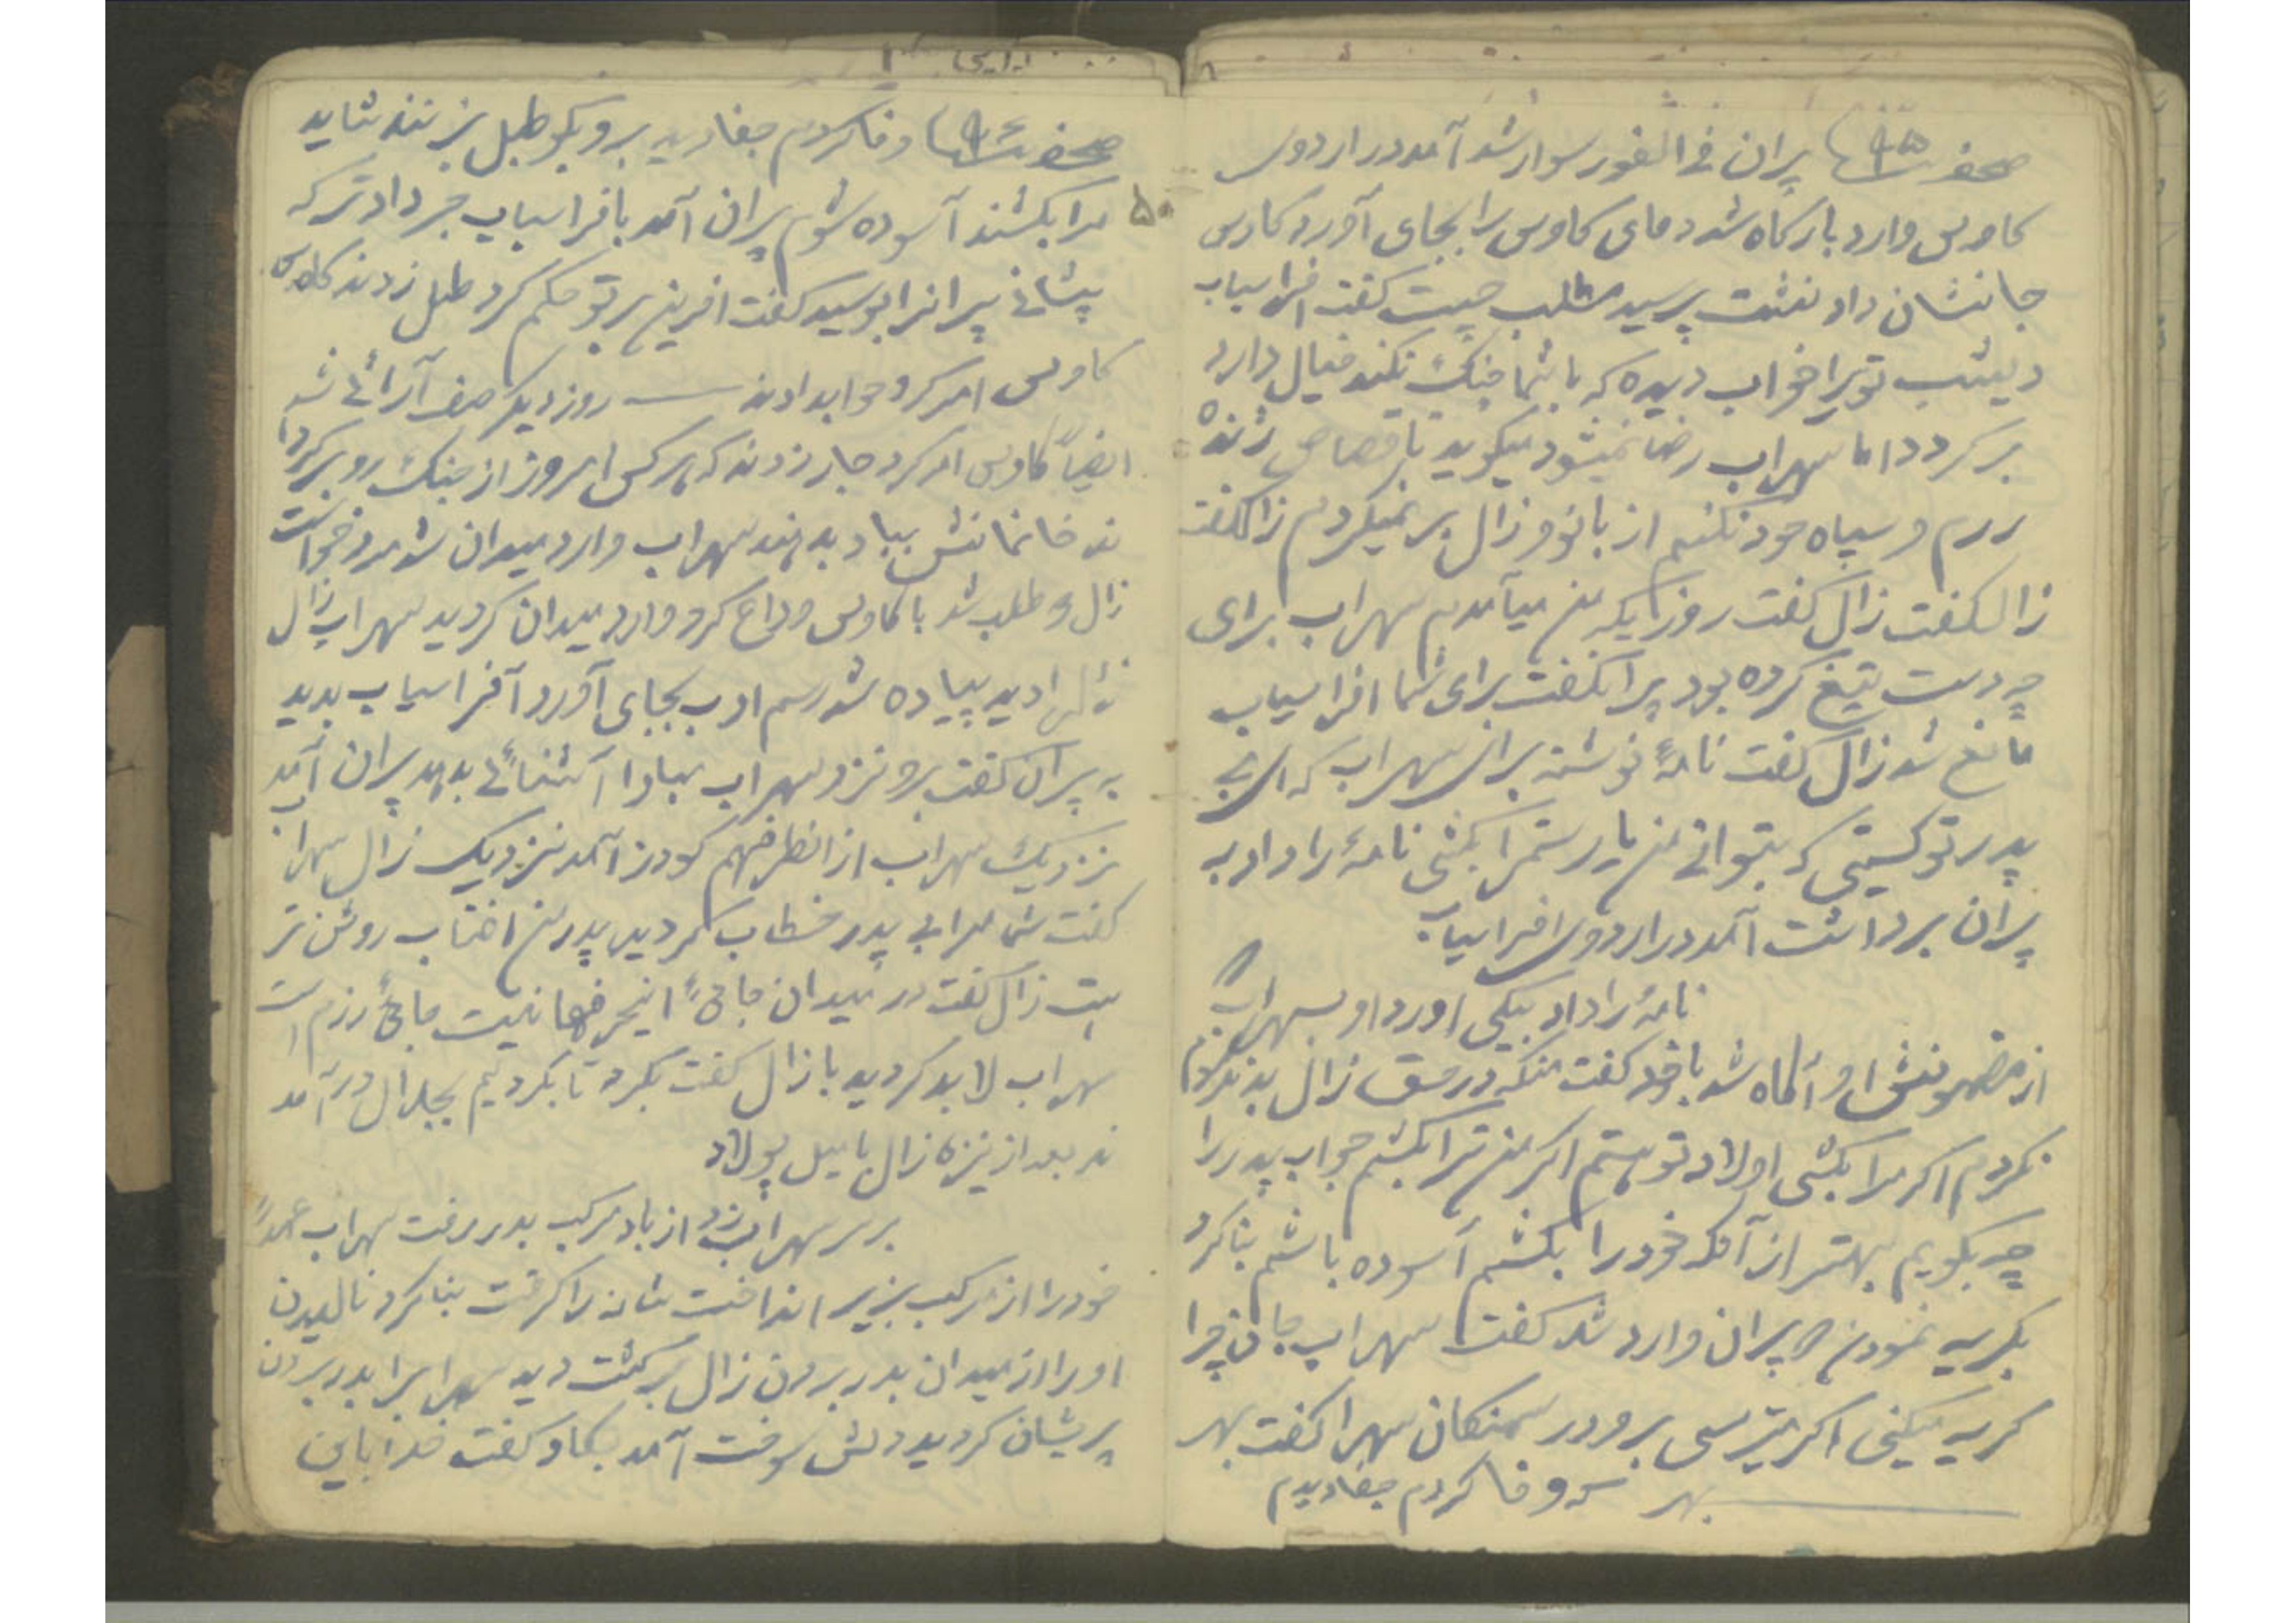 صحفه ۹۵ پیران فی الفور سوار شد آمد در اردوی
کاوس وارد بارگاه شد دعای کاوس را بجای آورد کاوس
جا نشان داد نشست پرسید مطلب چیست گفت افراسیاب
دیشب تو را خواب دیده که با شما جنگ نکند خیال دارد
برگردد اما سهراب رضا نمیشود میگوید تا قصاص ژنده
رزم و سپاه خود نکنم از بانو و زال بر نمیگردم زالگفت
زالگفت زال گفت روزیکه من میآمدم سهراب برای
چه دست بتیغ کرده بود پیرانگفت برای شما افراسیاب
مانع شد زال گفت نامهٔ نوشته برای سهراب که ای بی
پدر تو کیستی که بتوانی من یا رستم را بکشی نامهٔ را داد به
پیران برداشت آمد در اردوی افراسیاب
نامهٔ را داد بیکی اورد داد بسهراب
از مضمونش او آگاه شد با خود گفت منکه در حق زال بد
نکردم اگر مرا بکشی اولاد تو هستم اگر من ترا بکشم جواب پدر را
چه بگویم بهتر از آنکه خود را بکشم آسوده باشم بنا کرد
بگریه نمودن پیران وارد شد گفت سهراب جان چرا
گریه میکنی اگر میترسی برو در سمنکان سهرا گفت بهر
بهر که وفا کردم جفا دیدم
صحفه ۹۶ وفا کردم جفا دیدم برو بگو طبل بزنند شاید
مرا بکشند آسوده شوم پیران آمد بافراسیاب خبر داد ترکه
پیشانی پیرانرا بوسید گفت افرین بر تو حکم کرد طبل زدند
کاوس امر کرد جواب دادند — روز دیگر صف آرائی شد
ایضاً کاوس امر کرد جار زدند که هر کس امروز از جنگ رو برگردا
ند خانمانش بباد بدهند سهراب وارد میدان شد مرد خواست
زال طلب شد با کاوس وداع کرد وارد میدان گردید سهراب زال
دید پیاده شد رسم ادب بجای آورد آفراسیاب بدید
به پیران گفت برو نزد سهراب مبادا آشنائی بدهد پیران آمد
نزدیک سهراب از انطرفهم گودرز آمد نزدیک زال سهرا
گفت شما مرا بی پدر خطاب کردید پدر من افتاب روشن تر
است زال گفت در میدان جای اینحرفها نیست جای رزم است
سهراب لابد گردید با زال گفت بگرد تا بگردیم بجدال در آمد
ند بعد از نیزه زال با میل پولاد
بر سر سهراب زد از باد مرکب بدر رفت سهراب عمداً
خود را از مرکب بزیر انداخت شانه را گرفت بنا کرد نالیدن
او را از میدان بدر بردن زال برگشت دید سهرابرا بدر بردن
پریشان گردید دلش سوخت آمد گفت